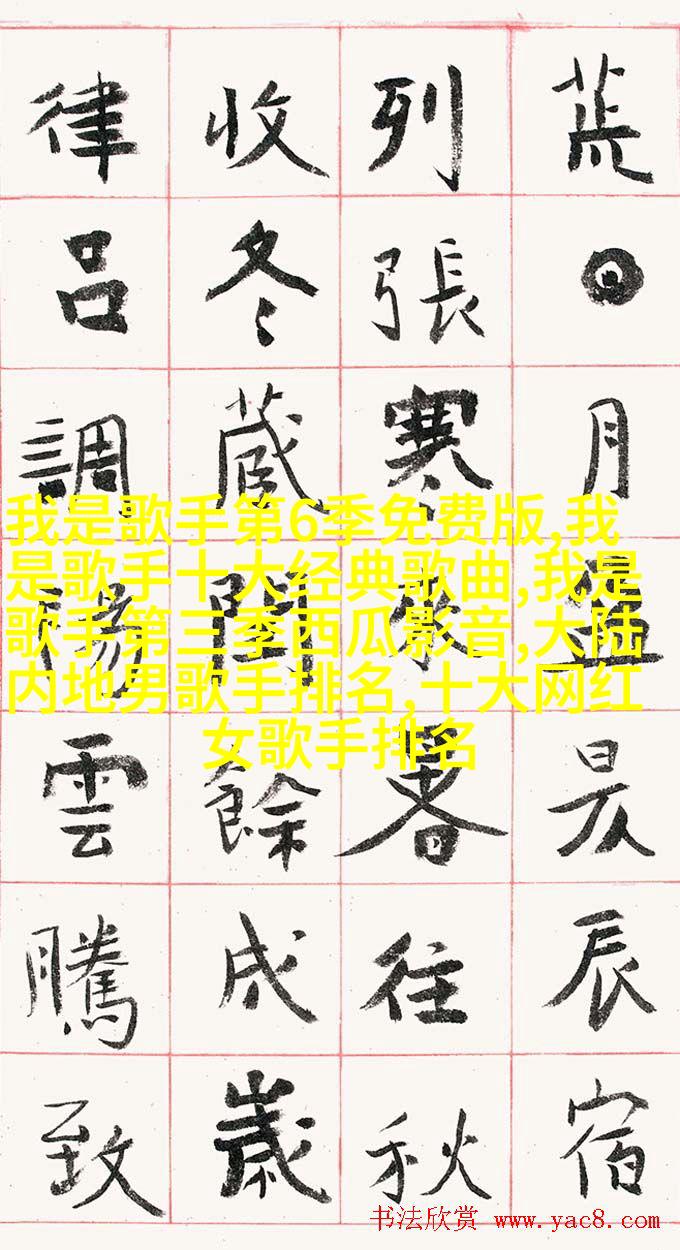 荒日月盈昃辰宿
列張寒來暑往秋
收冬藏閏餘成歲
律呂調陽雲騰致
我是歌手第6季免费版,我
是歌手十大经典歌曲,我是
歌手第三季西瓜影音,大陆
内地男歌手排名,十大网红
女歌手排名
书法欣赏 www.yac8.com